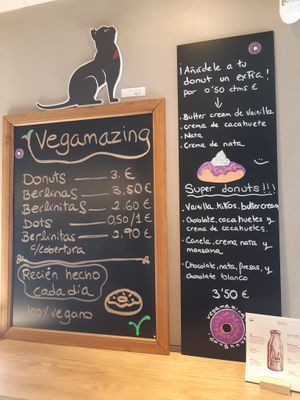 Vegamazing
Donuts — 3. €
Berlinas — 3.50 €
Berlinitas — 2.60 €
Dots — 0,50/1 €
Berlinitas — 2,90 €
c/cobertura
Recién hecho
cada día
100% vegano
¡Añádele a tu
donut un extra!
por 0'50 ctms €
· Butter cream de vainilla
· crema de cacahuete
· Nata
· Crema de nata
Super donuts!!!
· Vainilla, kikos, buttercream
· Chocolate, cacahuetes y
crema de cacahuetes.
· Canela, crema, nata y
manzana
· Chocolate, nata, fresas, y
chocolate blanco
3'50 €
vegamazing